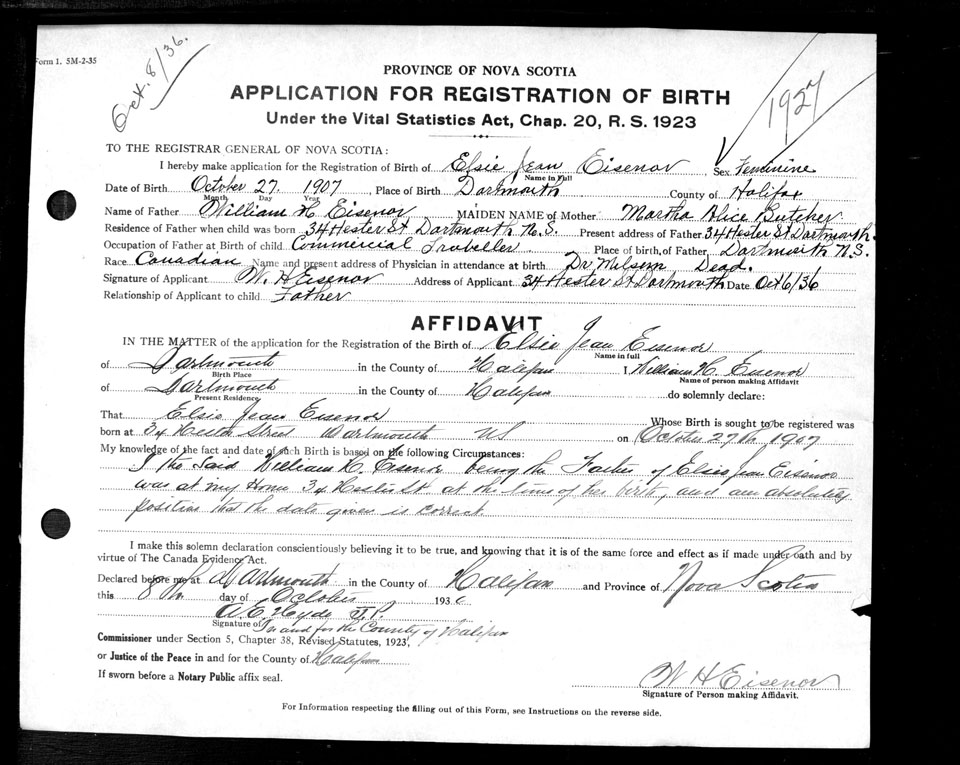 Form 1. 5M-2-35
Oct. 8/36.
1927
PROVINCE OF NOVA SCOTIA
APPLICATION FOR REGISTRATION OF BIRTH
Under the Vital Statistics Act, Chap. 20, R. S. 1923
TO THE REGISTRAR GENERAL OF NOVA SCOTIA:
I hereby make application for the Registration of Birth of Elsie Jean Eisenor Sex Feminine
Name in Full
Date of Birth October 27. 1907, Place of Birth Dartmouth County of Halifax
Month Day Year
Name of Father William H Eisenor MAIDEN NAME of Mother Martha Alice Butcher
Residence of Father when child was born 34 Hester St Dartmouth N.S. Present address of Father 34 Hester St Dartmouth.
Occupation of Father at Birth of child Commercial Traveller Place of birth, of Father Dartmouth N.S.
Race Canadian Name and present address of Physician in attendance at birth Dr Milsom Dead.
Signature of Applicant W. H Eisenor Address of Applicant 34 Hester St Dartmouth Date Oct 6/36
Relationship of Applicant to child Father
AFFIDAVIT
IN THE MATTER of the application for the Registration of the Birth of Elsie Jean Eisenor
Name in full
of Dartmouth in the County of Halifax I, William H. Eisenor
Birth Place Name of person making Affidavit
of Dartmouth in the County of Halifax do solemnly declare:
Present Residence
That Elsie Jean Eisenor Whose Birth is sought to be registered was
born at 34 Hester Street Dartmouth NS on October 27th 1907
My knowledge of the fact and date of such Birth is based on the following Circumstances:
I the Said William H. Eisenor being the Father of Elsie Jean Eisenor
was at my Home 34 Hester St. at the time of her birth, and am absolutely
positive that the date given is correct.
I make this solemn declaration conscientiously believing it to be true, and knowing that it is of the same force and effect as if made under oath and by
virtue of The Canada Evidence Act.
Declared before me at Dartmouth in the County of Halifax and Province of Nova Scotia
this 8th day of October 1936
A. E. Hyde J.P.
Signature of In and for the County of Halifax
Commissioner under Section 5, Chapter 38, Revised Statutes, 1923,
or Justice of the Peace in and for the County of Halifax
If sworn before a Notary Public affix seal.
W H Eisenor
Signature of Person making Affidavit.
For Information respecting the filling out of this Form, see Instructions on the reverse side.